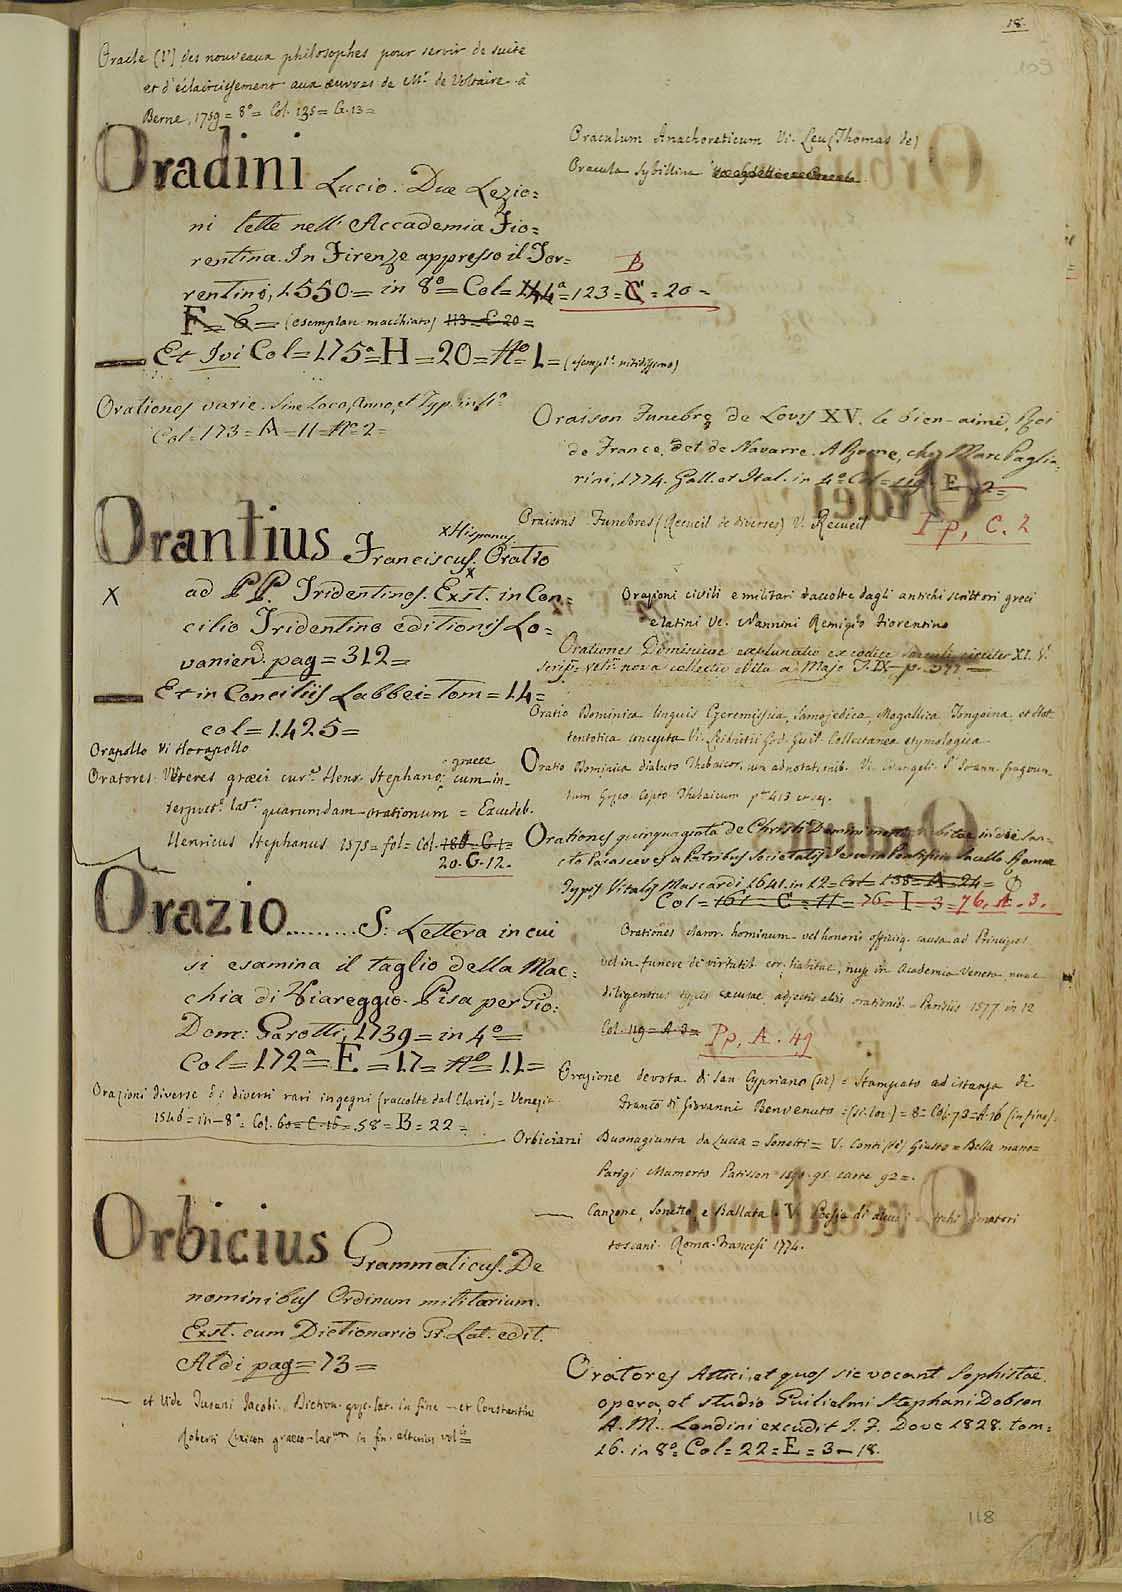 18.
Oracle (l') des nouveaux philosophes pour servir de suite
et d'éclaircissement aux œuvres de Mr. de Voltaire à
Berne, 1759 = 8º = Col. 135 = G. 13 =
Oradini Lucio. Due Lezio=
ni lette nell' Accademia Fio=
rentina. In Firenze appresso il Tor=
rentino, 1550 = in 8º = Col = 144ª = 123 = C B = 20 =
F = 6 = (esemplare macchiato) 113 = C 20 =
Et Ivi Col = 175ª = H = 20 = Nº 1 = (esempl. nitidissimo)
Orationes varie. Sine Loco, Anno, et Typ. in 4º
Col = 173 = A = 11 = Nº 2 =
Orantius Franciscus x Hispanus. Oratio
x ad PP. Tridentinos. Exst. in Con=
cilio Tridentino editionis Lo=
vanien. pag = 312 =
Et in Conciliis Labbei = Tom = 14 =
col = 1425 =
Orapollo Vi Horapollo
Oratores Veteres græci cur. Henr. Stephano; graece cum in=
terpret. lat. quarumdam orationum = Excudeb.
Henricus Stephanus 1575 = fol = Col. 180 = G. 1 =
20. G. 12.
Orazio......... S: Lettera in cui
si esamina il taglio della Mac=
chia di Viareggio. Pisa per Gio:
Dom: Carotti, 1739 = in 4º =
Col = 172ª = E = 17 = Nº 11 =
Orazioni diverse di diversi rari ingegni (raccolte dal Clario) = Venezia
1546 = in - 8º = Col. 60 = C. 16 = 58 = B = 22 =
Orbicius Grammaticus. De
nominibus Ordinum militarium.
Exst. cum Dictionario Gr. Lat. edit.
Aldi pag = 73 =
et Vide Tusani Jacobi. Diction. gręc. lat. in fine - et Constantin
Roberti Lexicon graeco-latum in fin. alterius vol.
Oraculum Anachoreticum Vi. Leu (Thomas de)
Oracula Sybillina
Oraison Funebre de Lovis XV. le bien-aimé, Roi
de France, et de Navarre. A Rome, chez Marc Paglia=
rini, 1774. Gall. et Ital. in 4º Col = 119 = E = 2 =
Oraisons Funebres (Recueil de diverses) V. Recueil Pp, C. 2
Orazioni civili e militari raccolte dagli antichi scrittori greci
e latini Ve. Nannini Remigio Fiorentino
Orationis Dominicae explanatio ex codice saeculi circiter XI. V.
Script. vet. nova collectio edita a Majo T. IX - p. 377 =
Oratio Dominica linguis Czeremissica, Samojedica, Mogallica Tongoina, et Hot=
tentotica concepta Vi. Leibnitii God. Guil. Collectanea etymologica
Oratio Dominica dialecto Thebaicor. cum adnotationib. Vi. Evangeli. S. Joann. fragmen=
tum Gręco Copto Thebaicum pag 413 et seq.
Orationes quinquaginta de Christi Domini morte habitae in die San=
cto Parasceves a Patribus Societatis Jesu in Pontificio Sacello Romae
Typis Vitalis Mascardi 1641. in 12 = Col = 138 = A = 24 =
Col = 161 = C = 11 = 76 = I = 3 = 76. A. 3.
Orationes clavor. hominum vel honoris officiiq. causa ad Principes
vel in funere de virtutib. eor. habitae, nup. in Academia Veneta, nunc
diligentius typis excusae, adjectis aliis orationib. - Parisiis 1577 in 12
Col. 119 = A. 3 = Pp, A. 49
Orazione devota di San Cypriano (sic) = Stampato ad istanza di
Franco di Giovanni Benvenuto = (si. loc.) = 8 = Col. 72 = A. 16 (in fine).
Orbiciani Buonagiunta da Lucca = Sonetti = V. Conti (de) Giusto = Bella mano =
Parigi Mamerto Patisson 1590. 95. carte 92 =.
Canzone, Sonetto, e Ballata = V. Poesie di alcuni antichi rimatori
toscani. Roma. Francesi 1774.
Oratores Attici, et quos sic vocant Sophistae,
opera et studio Guilielmi Stephani Dobson
A. M. Londini excudit J. F. Dove 1828. tom=
16. in 8º = Col = 22 = E = 3 - 18.
118